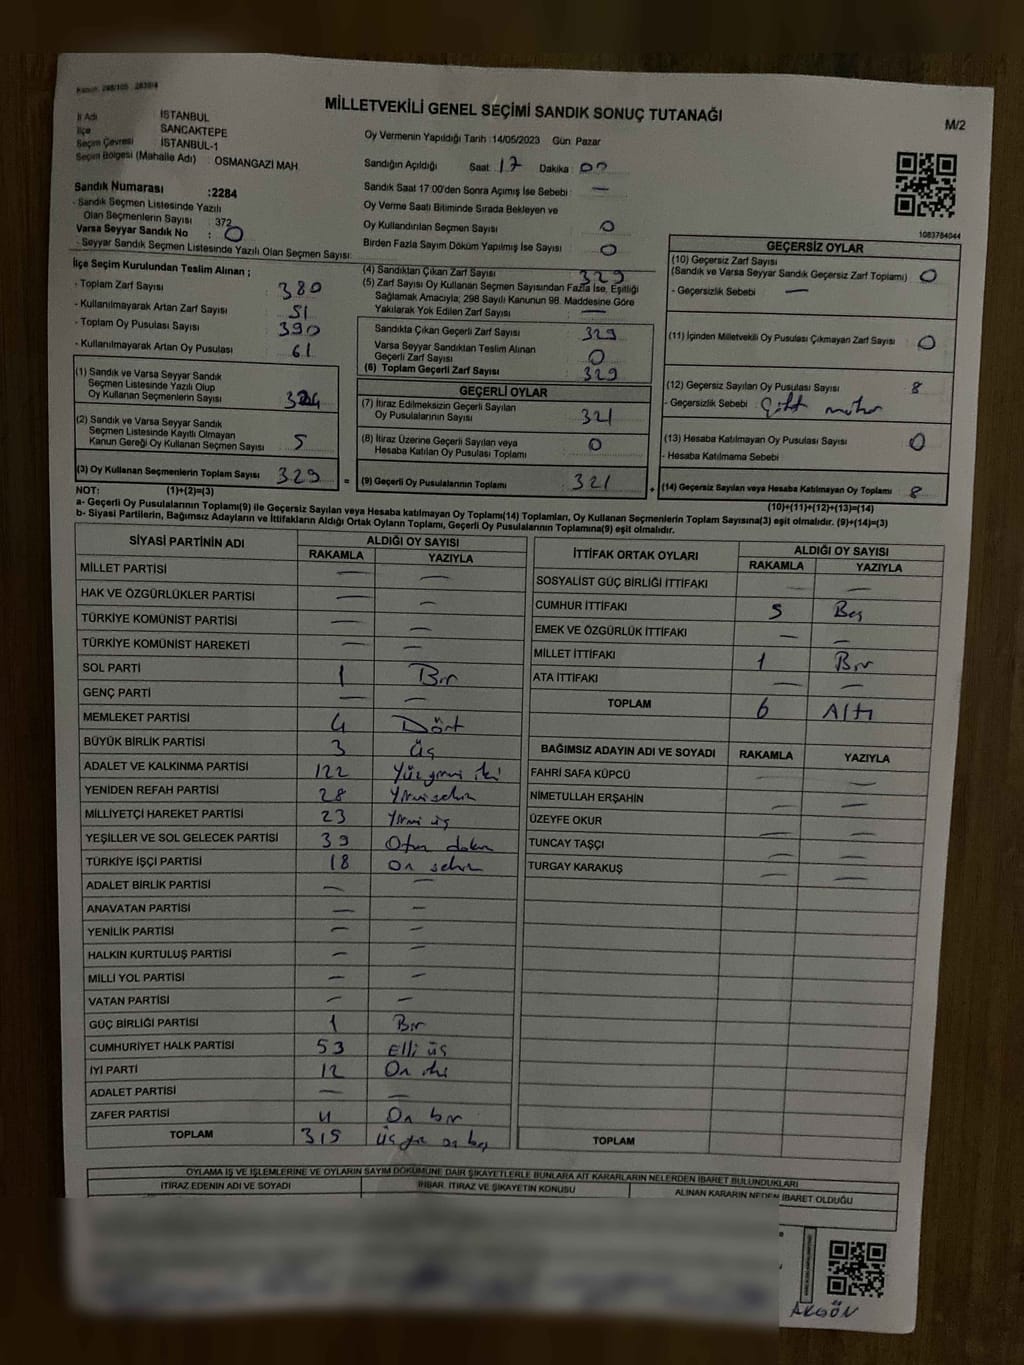 Kanun: 298/105 2839/4
MİLLETVEKİLİ GENEL SEÇİMİ SANDIK SONUÇ TUTANAĞI
M/2
İl Adı İSTANBUL
İlçe SANCAKTEPE
Seçim Çevresi İSTANBUL-1
Seçim Bölgesi (Mahalle Adı) : OSMANGAZİ MAH
Oy Vermenin Yapıldığı Tarih :14/05/2023 Gün: Pazar
Sandığın Açıldığı Saat: 17 Dakika: 00
Sandık Saat 17:00'den Sonra Açımış İse Sebebi : —
Oy Verme Saati Bitiminde Sırada Bekleyen ve
Oy Kullandırılan Seçmen Sayısı : 0
Birden Fazla Sayım Döküm Yapılmış İse Sayısı : 0
1083784044
Sandık Numarası :2284
- Sandık Seçmen Listesinde Yazılı
Olan Seçmenlerin Sayısı : 372
Varsa Seyyar Sandık No : 0
- Seyyar Sandık Seçmen Listesinde Yazılı Olan Seçmen Sayısı:
İlçe Seçim Kurulundan Teslim Alınan ;
- Toplam Zarf Sayısı : 380
- Kullanılmayarak Artan Zarf Sayısı : 51
- Toplam Oy Pusulası Sayısı : 390
- Kullanılmayarak Artan Oy Pusulası : 61
(1) Sandık ve Varsa Seyyar Sandık
Seçmen Listesinde Yazılı Olup
Oy Kullanan Seçmenlerin Sayısı : 324
(2) Sandık ve Varsa Seyyar Sandık
Seçmen Listesinde Kayıtlı Olmayan
Kanun Gereği Oy Kullanan Seçmen Sayısı : 5
(3) Oy Kullanan Seçmenlerin Toplam Sayısı : 329
(4) Sandıktan Çıkan Zarf Sayısı : 329
(5) Zarf Sayısı Oy Kullanan Seçmen Sayısından Fazla İse, Eşitliği
Sağlamak Amacıyla; 298 Sayılı Kanunun 98. Maddesine Göre
Yakılarak Yok Edilen Zarf Sayısı : —
Sandıkta Çıkan Geçerli Zarf Sayısı : 329
Varsa Seyyar Sandıktan Teslim Alınan
Geçerli Zarf Sayısı : 0
(6) Toplam Geçerli Zarf Sayısı : 329
GEÇERLİ OYLAR
(7) İtiraz Edilmeksizin Geçerli Sayılan
Oy Pusulalarının Sayısı : 321
(8) İtiraz Üzerine Geçerli Sayılan veya
Hesaba Katılan Oy Pusulası Toplamı : 0
= (9) Geçerli Oy Pusulalarının Toplamı : 321
GEÇERSİZ OYLAR
(10) Geçersiz Zarf Sayısı
(Sandık ve Varsa Seyyar Sandık Geçersiz Zarf Toplamı) : 0
- Geçersizlik Sebebi : —
(11) İçinden Milletvekili Oy Pusulası Çıkmayan Zarf Sayısı : 0
(12) Geçersiz Sayılan Oy Pusulası Sayısı : 8
- Geçersizlik Sebebi : Çift mühür
(13) Hesaba Katılmayan Oy Pusulası Sayısı : 0
- Hesaba Katılmama Sebebi
+ (14) Geçersiz Sayılan veya Hesaba Katılmayan Oy Toplamı : 8
NOT: (1)+(2)=(3)
(10)+(11)+(12)+(13)=(14)
a- Geçerli Oy Pusulaları Toplamı(9) ile Geçersiz Sayılan veya Hesaba katılmayan Oy Toplamı(14) Toplamları, Oy Kullanan Seçmenlerin Toplam Sayısına(3) eşit olmalıdır. (9)+(14)=(3)
b- Siyasi Partilerin, Bağımsız Adayların ve İttifakların Aldığı Ortak Oyların Toplamı, Geçerli Oy Pusulalarının Toplamına(9) eşit olmalıdır.
SİYASİ PARTİNİN ADI ALDIĞI OY SAYISI
RAKAMLA YAZIYLA
MİLLET PARTİSİ — —
HAK VE ÖZGÜRLÜKLER PARTİSİ — —
TÜRKİYE KOMÜNİST PARTİSİ — —
TÜRKİYE KOMÜNİST HAREKETİ — —
SOL PARTİ 1 Bir
GENÇ PARTİ — —
MEMLEKET PARTİSİ 4 Dört
BÜYÜK BİRLİK PARTİSİ 3 üç
ADALET VE KALKINMA PARTİSİ 122 Yüzyirmi iki
YENİDEN REFAH PARTİSİ 28 Yirmisekiz
MİLLİYETÇİ HAREKET PARTİSİ 23 Yirmi üç
YEŞİLLER VE SOL GELECEK PARTİSİ 39 Otuz dokuz
TÜRKİYE İŞÇİ PARTİSİ 18 On sekiz
ADALET BİRLİK PARTİSİ — —
ANAVATAN PARTİSİ — —
YENİLİK PARTİSİ — —
HALKIN KURTULUŞ PARTİSİ — —
MİLLİ YOL PARTİSİ — —
VATAN PARTİSİ — —
GÜÇ BİRLİĞİ PARTİSİ 1 Bir
CUMHURİYET HALK PARTİSİ 53 Elli üç
İYİ PARTİ 12 On iki
ADALET PARTİSİ — —
ZAFER PARTİSİ 11 On bir
TOPLAM 315 üç yüz on beş
İTTİFAK ORTAK OYLARI ALDIĞI OY SAYISI
RAKAMLA YAZIYLA
SOSYALİST GÜÇ BİRLİĞİ İTTİFAKI — —
CUMHUR İTTİFAKI 5 Beş
EMEK VE ÖZGÜRLÜK İTTİFAKI — —
MİLLET İTTİFAKI 1 Bir
ATA İTTİFAKI — —
TOPLAM 6 Altı
BAĞIMSIZ ADAYIN ADI VE SOYADI RAKAMLA YAZIYLA
FAHRİ SAFA KÜPCÜ — —
NİMETULLAH ERŞAHİN — —
ÜZEYFE OKUR — —
TUNCAY TAŞÇI — —
TURGAY KARAKUŞ — —
TOPLAM
OYLAMA İŞ VE İŞLEMLERİNE VE OYLARIN SAYIM DÖKÜMÜNE DAİR ŞİKAYETLERLE BUNLARA AİT KARARLARIN NELERDEN İBARET BULUNDUKLARI
İTİRAZ EDENİN ADI VE SOYADI İHBAR, İTİRAZ VE ŞİKAYETİN KONUSU ALINAN KARARIN NEDEN İBARET OLDUĞU
AKGÖN